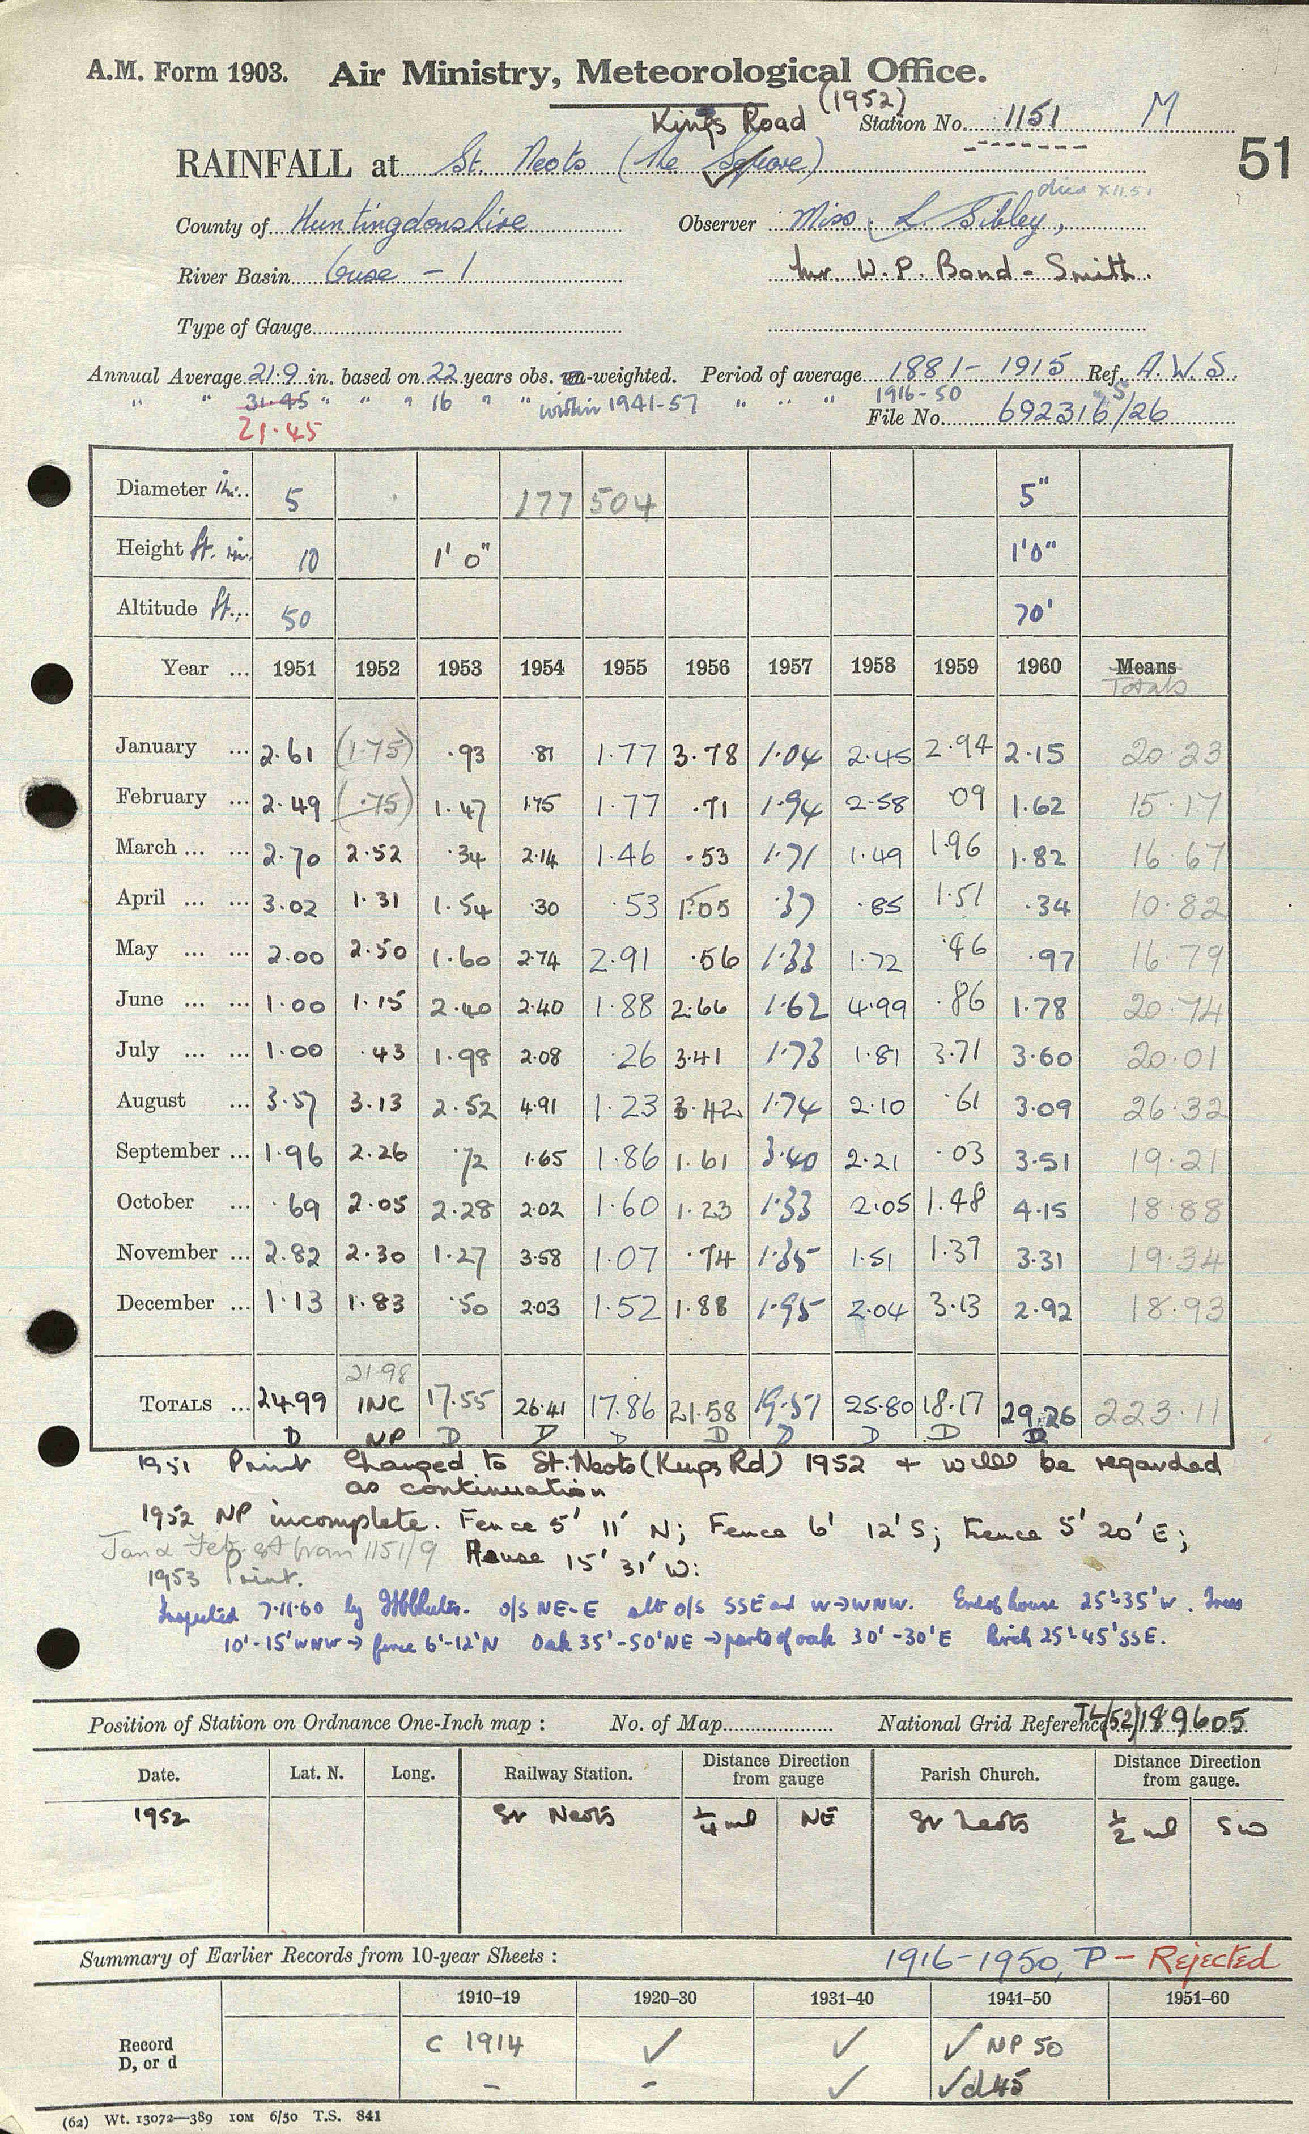 A.M. Form 1903. Air Ministry, Meteorological Office.
Kings Road (1952) Station No. 1151 M
51
RAINFALL at St. Neots (The Square)
died XII.51
County of Huntingdonshire Observer Miss L. Sibley,
River Basin Ouse - 1 Mr. W. P. Band-Smith.
Type of Gauge
Annual Average 21.9 in. based on 22 years obs. un-weighted. Period of average 1881-1915 Ref. A.W.S.
" " 31.45 " " " 16 " " within 1941-57 " " " 1916-50
21.45 File No. 692316/26
Diameter in. 5 177 504 5"
Height ft. in. 10 1' 0" 1'0"
Altitude ft. 50 70'
Year ... 1951 1952 1953 1954 1955 1956 1957 1958 1959 1960 Means
Totals
January ... 2.61 (1.75) .93 .81 1.77 3.78 1.04 2.45 2.94 2.15 20.23
February ... 2.49 (.75) 1.47 1.75 1.77 .71 1.94 2.58 09 1.62 15.17
March ... ... 2.70 2.52 .34 2.14 1.46 .53 1.71 1.49 1.96 1.82 16.67
April ... ... 3.02 1.31 1.54 .30 .53 1.05 .37 .85 1.51 .34 10.82
May ... ... 2.00 2.50 1.60 2.74 2.91 .56 1.33 1.72 .46 .97 16.79
June ... ... 1.00 1.15 2.40 2.40 1.88 2.66 1.62 4.99 .86 1.78 20.74
July ... ... 1.00 .43 1.98 2.08 .26 3.41 1.73 1.81 3.71 3.60 20.01
August ... 3.57 3.13 2.52 4.91 1.23 3.42 1.74 2.10 .61 3.09 26.32
September ... 1.96 2.26 .72 1.65 1.86 1.61 3.40 2.21 .03 3.51 19.21
October ... .69 2.05 2.28 2.02 1.60 1.23 1.33 2.05 1.48 4.15 18.88
November ... 2.82 2.30 1.27 3.58 1.07 .74 1.35 1.51 1.39 3.31 19.34
December ... 1.13 1.83 .50 2.03 1.52 1.88 1.95 2.04 3.13 2.92 18.93
21.98
TOTALS ... 24.99 INC 17.55 26.41 17.86 21.58 19.51 25.80 18.17 29.26 223.11
D NP D D D D D D D D
1951 Print Changed to St. Neots (Kings Rd) 1952 + will be regarded
as continuation
1952 NP incomplete. Fence 5' 11' N; Fence 6' 12' S; Fence 5' 20' E;
Jan & Feb est from 1151/9 House 15' 31' W:
1953 Print.
Inspected 7.11.60 by o/s NE-E alt o/s SSE and W→WNW. End of house 25'-35' W. Trees
10'-15' WNW → fence 6'-12' N Oak 35'-50' NE → parts of oak 30'-30' E Birch 25'-45' SSE.
Position of Station on Ordnance One-Inch map : No. of Map National Grid Reference TL(52)189605
Date. Lat. N. Long. Railway Station. Distance Direction from gauge Parish Church. Distance Direction from gauge.
1952 St Neots ¼ ml NE St Neots ½ ml SW
Summary of Earlier Records from 10-year Sheets : 1916-1950, P - Rejected
1910-19 1920-30 1931-40 1941-50 1951-60
Record C 1914 ✓ ✓ ✓ NP 50
D, or d - - ✓ ✓ d45
(62) Wt. 13072—389 10M 6/50 T.S. 841